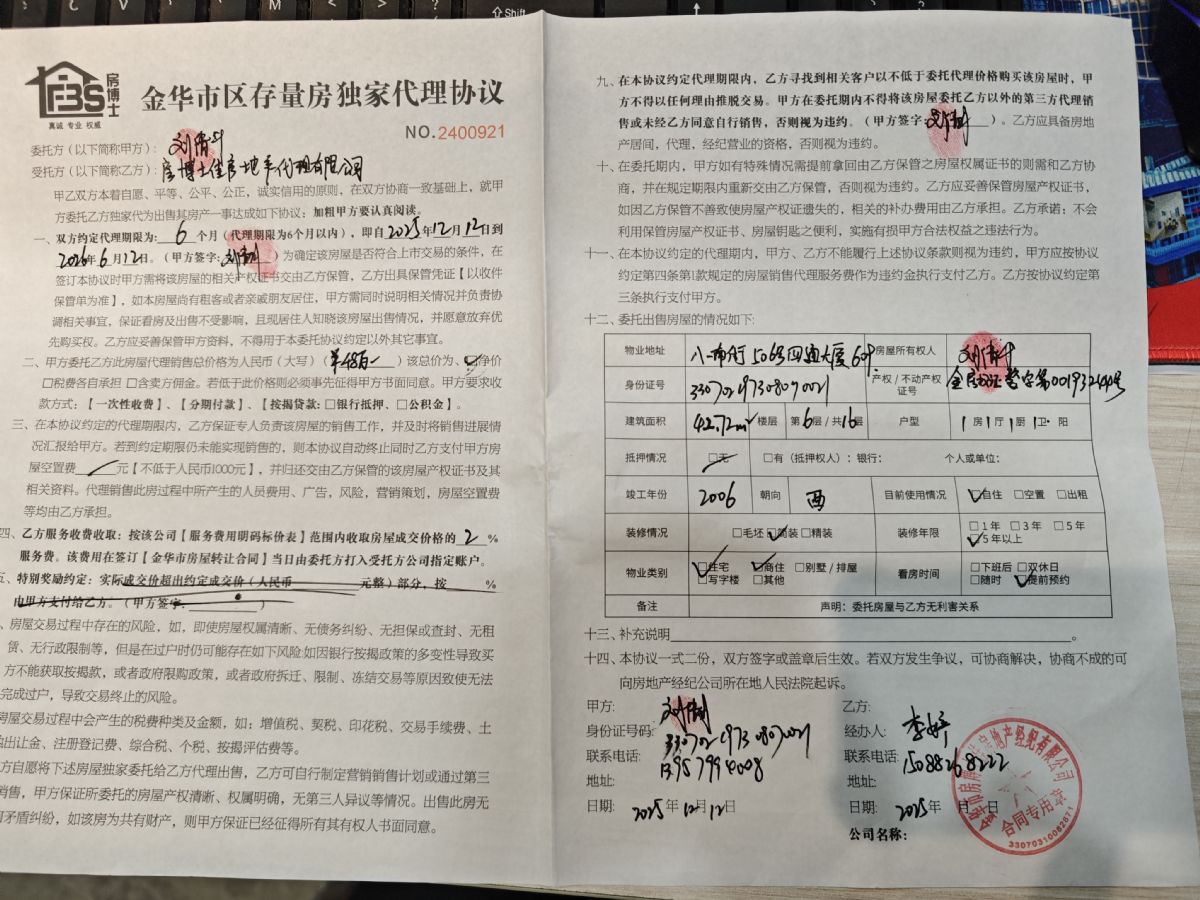 FBS
房博士
真诚 专业 权威
金华市区存量房独家代理协议
NO.2400921
委托方（以下简称甲方）：
受托方（以下简称乙方）：房博士住房地产代理有限公司
甲乙双方本着自愿、平等、公平、公正，诚实信用的原则，在双方协商一致基础上，就甲
方委托乙方独家代为出售其房产一事达成如下协议：加粗甲方要认真阅读。
一、双方约定代理期限为：6个月（代理期限为6个月以内），即自2025年12月12日到
2026年6月12日。（甲方签字： ）为确定该房屋是否符合上市交易的条件，在
签订本协议时甲方需将该房屋的相关产权证书交由乙方保管，乙方出具保管凭证【以收件
保管单为准】，如本房屋尚有租客或者亲戚朋友居住，甲方需同时说明相关情况并负责协
调相关事宜，保证看房及出售不受影响，且现居住人知晓该房屋出售情况，并愿意放弃优
先购买权。乙方应妥善保管甲方资料，不得用于本委托协议约定以外其它事宜。
二、甲方委托乙方此房屋代理销售总价格为人民币（大写）（ ）该总价为、☑净价
□税费各自承担 □含卖方佣金。若低于此价格则必须事先征得甲方书面同意。甲方要求收
款方式：【一次性收费】、【分期付款】、【按揭贷款：□银行抵押、□公积金】。
三、在本协议约定的代理期限内，乙方保证专人负责该房屋的销售工作，并及时将销售进展情
况汇报给甲方。若到约定期限仍未能实现销售的，则本协议自动终止同时乙方支付甲方房
屋空置费 元【不低于人民币1000元】，并归还交由乙方保管的该房屋产权证书及其
相关资料。代理销售此房过程中所产生的人员费用、广告，风险，营销策划，房屋空置费
等均由乙方承担。
四、乙方服务收费收取：按该公司【服务费用明码标价表】范围内收取房屋成交价格的 2 %
服务费。该费用在签订【金华市房屋转让合同】当日由委托方打入受托方公司指定账户。
五、特别奖励约定：实际成交价超出约定成交价（人民币 元整）部分，按 %
由甲方支付给乙方。（甲方签字： ）
、房屋交易过程中存在的风险，如，即使房屋权属清晰、无债务纠纷、无担保或查封、无租
赁、无行政限制等，但是在过户时仍可能存在如下风险:如因银行按揭政策的多变性导致买
方不能获取按揭款，或者政府限购政策，或者政府拆迁、限制、冻结交易等原因致使无法
完成过户，导致交易终止的风险。
房屋交易过程中会产生的税费种类及金额，如：增值税、契税、印花税、交易手续费、土
地出让金、注册登记费、综合税、个税、按揭评估费等。
方自愿将下述房屋独家委托给乙方代理出售，乙方可自行制定营销销售计划或通过第三
销售，甲方保证所委托的房屋产权清晰、权属明确，无第三人异议等情况。出售此房无
何矛盾纠纷，如该房为共有财产，则甲方保证已经征得所有其有权人书面同意。
九、在本协议约定代理期限内，乙方寻找到相关客户以不低于委托代理价格购买该房屋时，甲
方不得以任何理由推脱交易。甲方在委托期内不得将该房屋委托乙方以外的第三方代理销
售或未经乙方同意自行销售，否则视为违约。（甲方签字： ）。乙方应具备房地
产居间，代理，经纪营业的资格，否则视为违约。
十、在委托期内，甲方如有特殊情况需提前拿回由乙方保管之房屋权属证书的则需和乙方协
商，并在规定期限内重新交由乙方保管，否则视为违约。乙方应妥善保管房屋产权证书，
如因乙方保管不善致使房屋产权证遗失的，相关的补办费用由乙方承担。乙方承诺：不会
利用保管房屋产权证书、房屋钥匙之便利，实施有损甲方合法权益之违法行为。
十一、在本协议约定的代理期内，甲方、乙方不能履行上述协议条款则视为违约，甲方应按协议
约定第四条第1款规定的房屋销售代理服务费作为违约金执行支付乙方。乙方按协议约定第
三条执行支付甲方。
十二、委托出售房屋的情况如下:
物业地址 八一南街506号四通大厦 房屋所有权人
身份证号 330702197308070021 产权/不动产权证号
建筑面积 42.72m² 楼层 第6层/共16层 户型 1房1厅1厨1卫·阳
抵押情况 □无 □有（抵押权人）：银行： 个人或单位：
竣工年份 2006 朝向 西 目前使用情况 ☑自住 □空置 □出租
装修情况 □毛坯 ☑简装 □精装 装修年限 □1年 □3年 □5年 ☑5年以上
物业类别 ☑住宅 ☑商住 □别墅/排屋 □写字楼 □其他 看房时间 □下班后 □双休日 □随时 ☑提前预约
备注 声明：委托房屋与乙方无利害关系
十三、补充说明 。
十四、本协议一式二份，双方签字或盖章后生效。若双方发生争议，可协商解决，协商不成的可
向房地产经纪公司所在地人民法院起诉。
甲方： 乙方：
身份证号码：330702197308070021 经办人：李婷
联系电话：13957994008 联系电话：15088268222
地址： 地址:
日期：2025年12月12日 日期：2025年 月 日
公司名称：
合同专用章
3307031008267